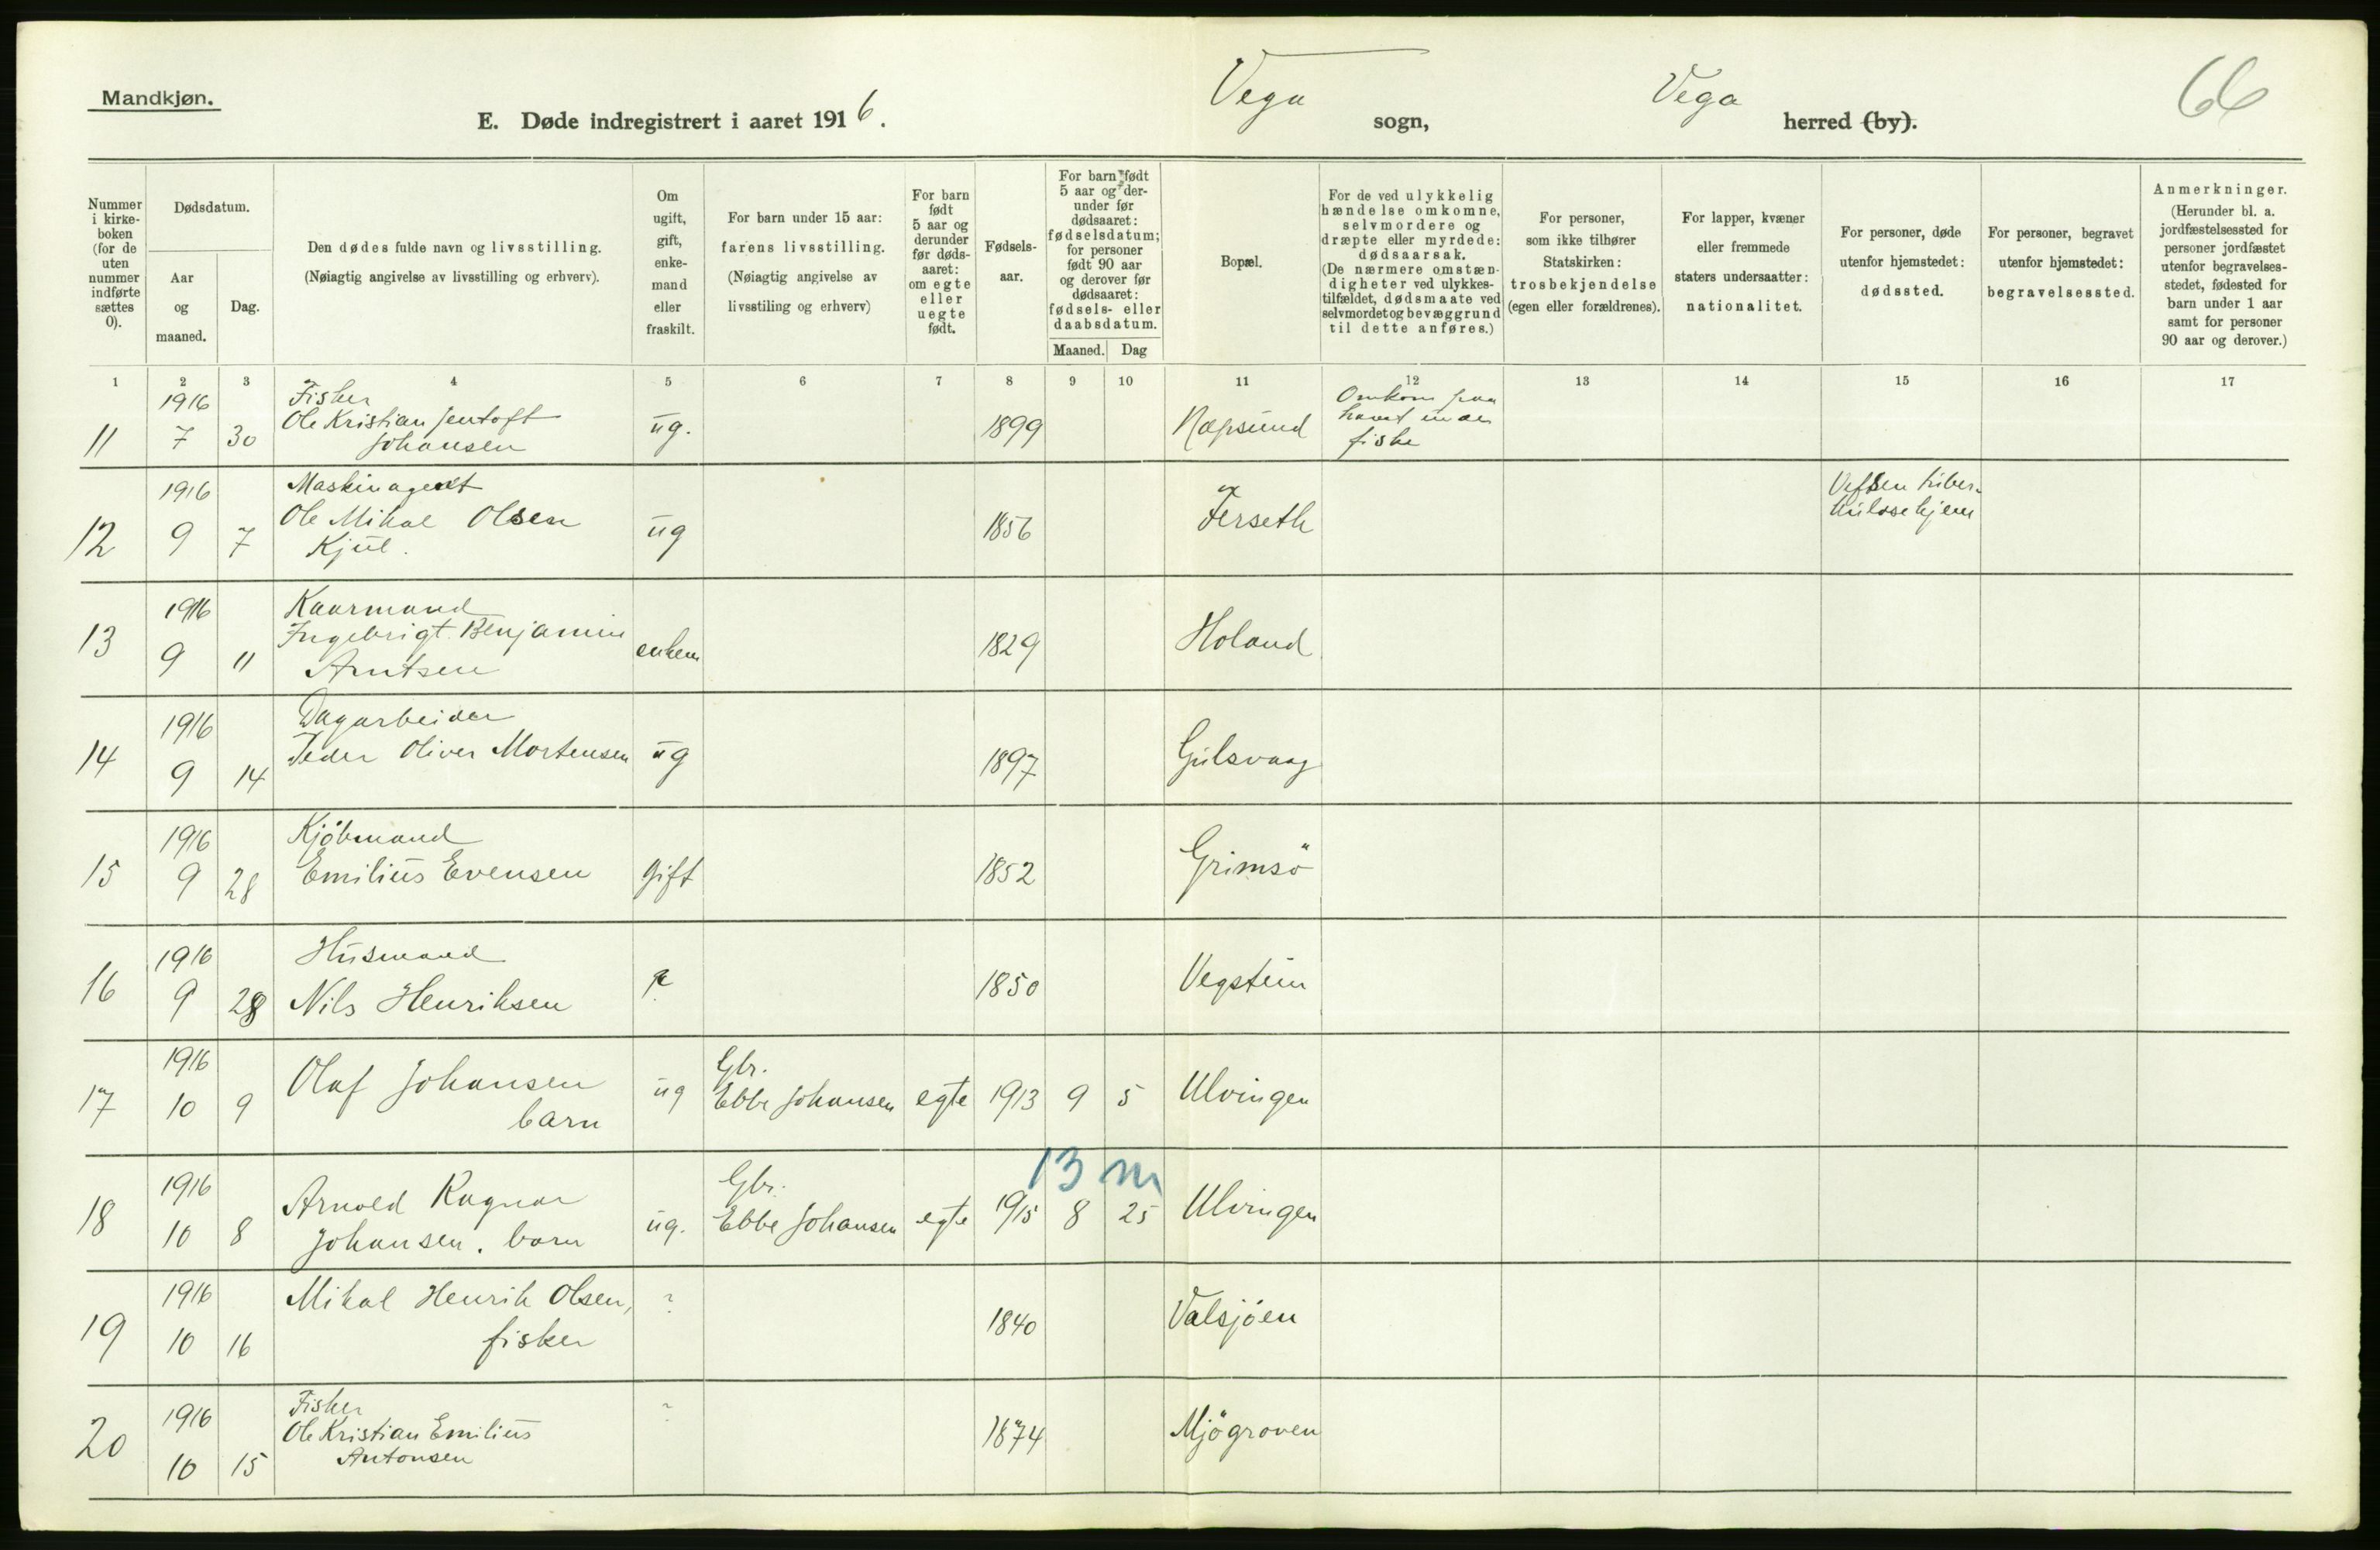 Mandkjøn.
E. Døde indregistrert i aaret 1916.
Vega sogn,
Vega herred (by).
66
Nummer i kirke-boken (for de uten nummer indførte sættes 0).
Dødsdatum.
Aar og maaned.
Dag.
Den dødes fulde navn og livsstilling.
(Nøiagtig angivelse av livsstilling og erhverv).
Om ugift, gift, enke-mand eller fraskilt.
For barn under 15 aar:
farens livsstilling.
(Nøiagtig angivelse av
livsstiling og erhverv)
For barn født 5 aar og derunder før døds-aaret: om egte eller uegte født.
Fødsels-aar.
For barn født 5 aar og der-under før dødsaaret: fødselsdatum; for personer født 90 aar og derover før dødsaaret: fødsels- eller daabsdatum.
Maaned.
Dag
Bopæl.
For de ved ulykkelig hændelse omkomne, selvmordere og dræpte eller myrdede: dødsaarsak.
(De nærmere omstæn-digheter ved ulykkes-tilfældet, dødsmaate ved selvmordet og bevæggrund til dette anføres.)
For personer, som ikke tilhører Statskirken: trosbekjendelse (egen eller forældrenes).
For lapper, kvæner eller fremmede staters undersaatter: nationalitet.
For personer, døde utenfor hjemstedet: dødssted.
For personer, begravet utenfor hjemstedet: begravelsessted.
Anmerkninger.
(Herunder bl. a. jordfæstelsessted for personer jordfæstet utenfor begravelses-stedet, fødested for barn under 1 aar samt for personer 90 aar og derover.)
1 2 3 4 5 6 7 8 9 10 11 12 13 14 15 16 17
1916 Fisker Omkom paa
11 7 30 Ole Kristian Jentoft ug. 1899 Næpsund havet under
Johansen fiske
1916 Maskinagent Vefsen tuber-
12 9 7 Ole Mikal Olsen ug 1856 Ferseth kulosehjem
Kjul.
1916 Kaarmand
13 9 11 Ingebrigt Benjamin enkem 1829 Holand
Arntsen
1916 Dagarbeider
14 9 14 Peder Oliver Mortensen ug 1897 Gulsvaag
1916 Kjöbmand
15 9 28 Emilius Evensen gift 1852 Grimsö
1916 Husmand
16 9 28 Nils Henriksen ? 1850 Vegstein
1916 Gbr.
17 10 9 Olaf Johansen ug Ebbe Johansen egte 1913 9 5 Ulvingen
barn
13 m
1916 Gbr.
18 10 8 Arnold Ragnar ug. Ebbe Johansen egte 1915 8 25 Ulvingen
Johansen. barn
1916 Mikal Henrik Olsen, ?
19 10 16 fisker 1840 Valsjöen
1916 Fisker ?
20 10 15 Ole Kristian Emilius 1874 Mjögroven
Antonsen